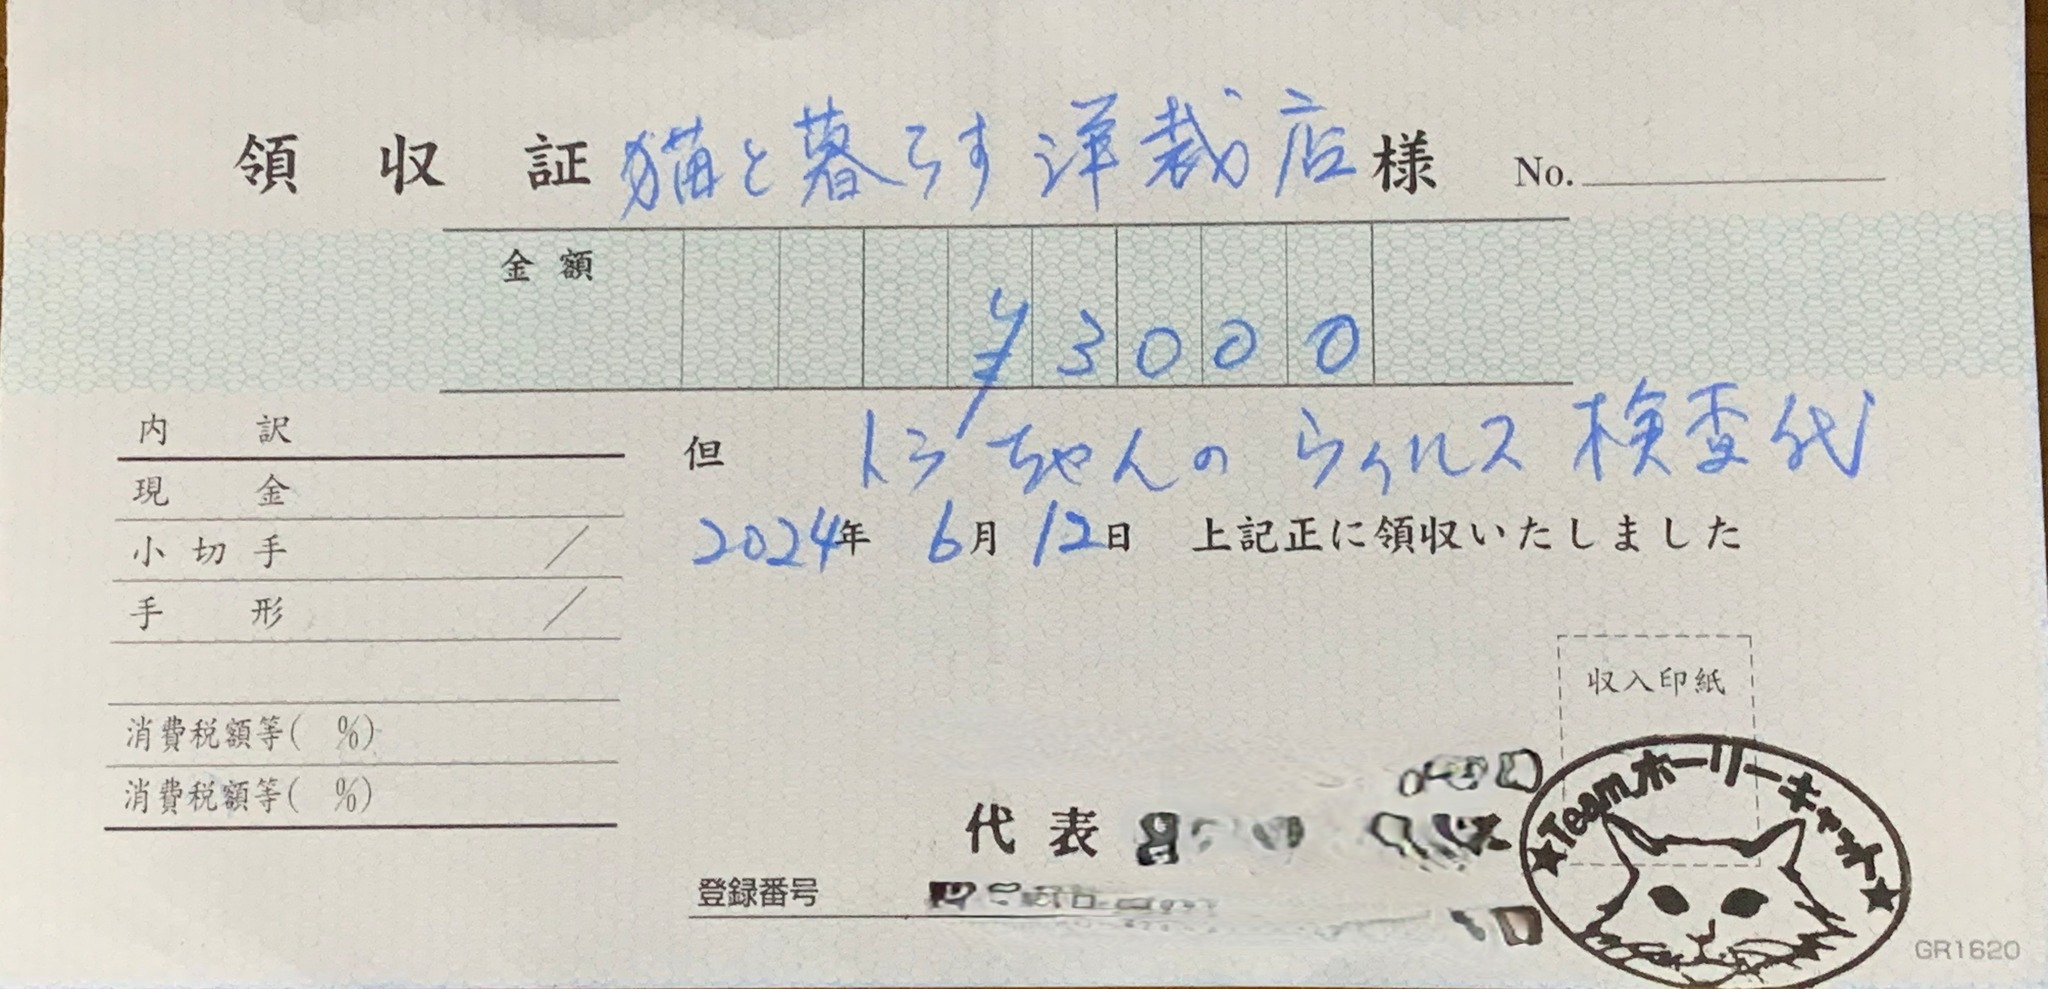 領収証 猫と暮らす洋裁店 様 No.
金額 ¥3000
但 トラちゃんのウィルス検査代
2024年 6月 12日 上記正に領収いたしました
内訳
現金
小切手 /
手形 /
消費税額等( %)
消費税額等( %)
収入印紙
代表
登録番号
★Teamホーリーキャット★
GR1620